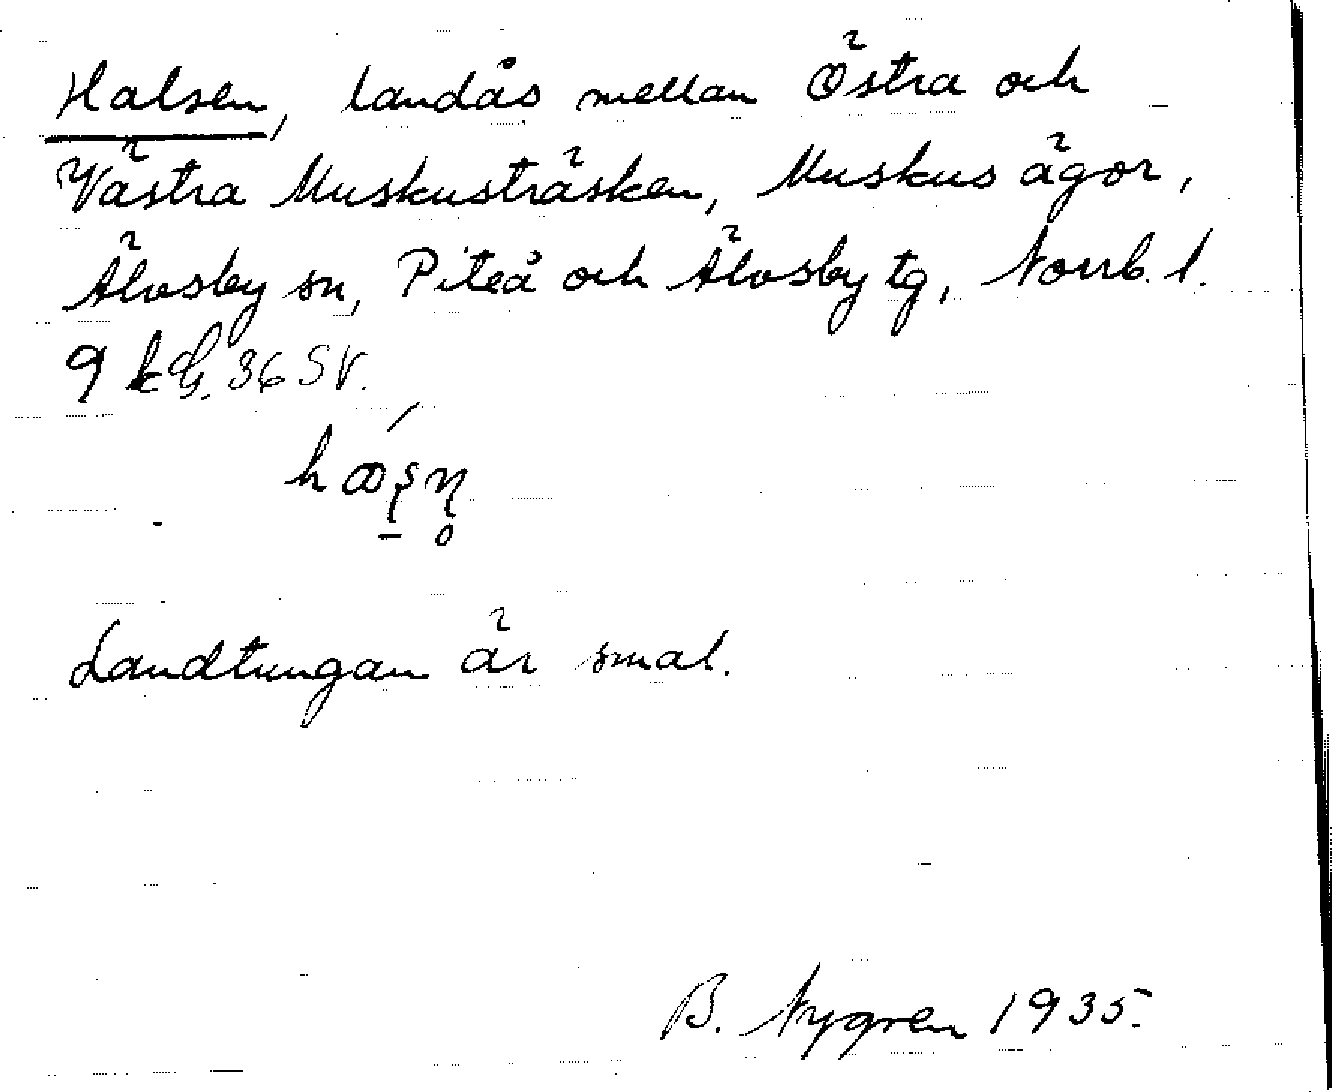 Halsen, landås mellan Östra och
Västra Muskusträsken, Muskus ägor,
Älvsby sn, Piteå och Älvsby tg, Norrb. l.
9 k G. 36 SV.
Landtungan är smal.
B. Nygren 1935.